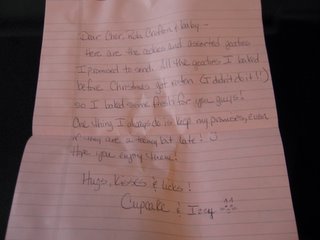 Dear Cher, Kida Crafton & baby -
Here are the cookies and assorted goodies
I promised to send. All the goodies I baked
before Christmas got eaten (I didn't do it!!)
so I baked some fresh for you guys!
One thing I always do is keep my promises, even
if they are a teeny bit late! :)
Hope you enjoy them!
Hugs, Kisses & Licks!
Cupcake & Izzy